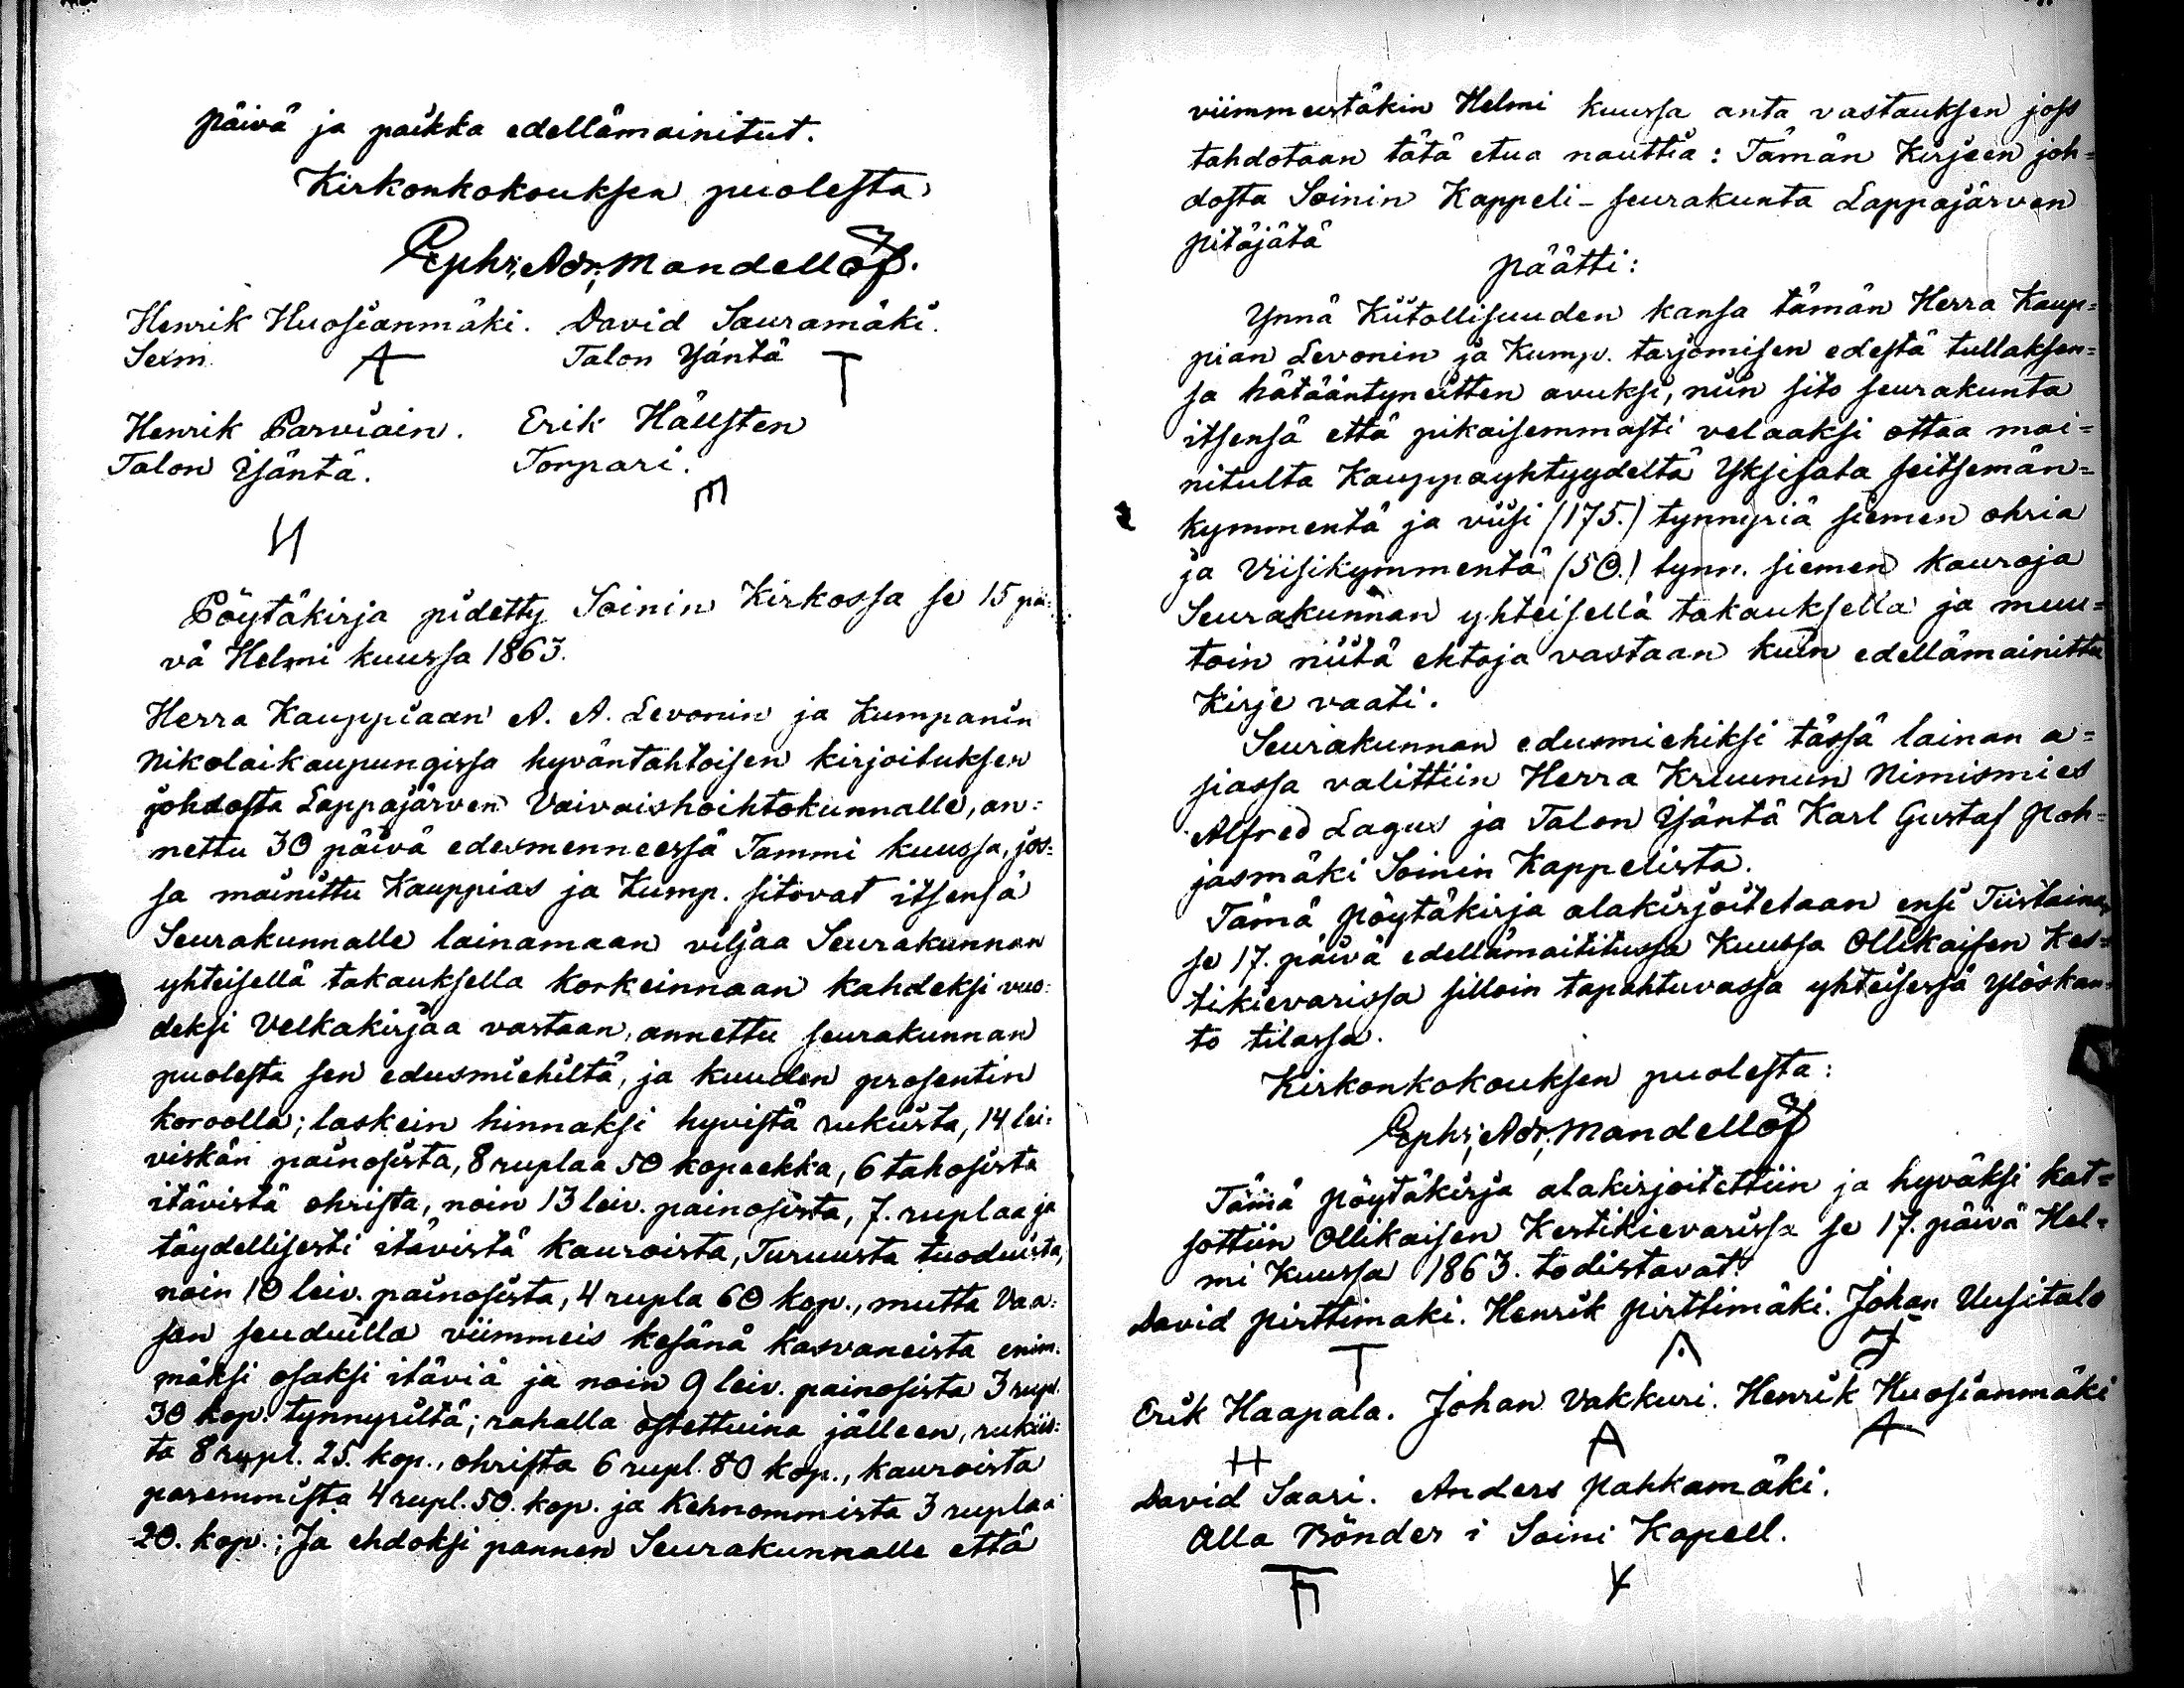 päivä ja paikka edellämainitut.
Kirkonkokouksen puolesta,
Ephr. Adr. Mandellöf.
Henrik Huosianmäki. David Sauramäki.
Sexm. Talon Yäntä
Henrik Parviain. Erik Hällsten
Talon Ysäntä. Torpari.
Pöytäkirja pidetty Soinin Kirkossa se 15 päi-
vä Helmi kuussa 1863.
Herra Kauppiaan A. A. Levonin ja Kumpanin
Nikolaikaupungissa hyväntahtoisen kirjoituksen
johdosta Lappajärven Vaivaishoihtokunnalle, an=
nettu 30 päivä edesmenneessä Tammi kuussa, jos=
sa mainittu Kauppias ja Kump. sitovat itsensä
Seurakunnalle lainamaan viljaa Seurakunnan
yhteisellä takauksella korkeinnaan kahdeksi vuo=
deksi Velkakirjaa vastaan, annettu seurakunnan
puolesta sen edusmiehiltä, ja kuuden prosentin
koroolla; laskein hinnaksi hyvistä rukiista, 14 lei=
viskän painosista, 8 ruplaa 50 kopeekka, 6 tahosista
itävistä ohrista, noin 13 leiv. painosista, 7. ruplaa ja
täydellisesti itävistä kauroista, Turuusta tuoduista,
noin 10 leiv. painosista, 4 rupla 60 kop., mutta Vaa=
san seuduilla viimmeis kesänä kasvaneista enim=
mäksi osaksi itäviä ja noin 9 leiv. painosista 3 rupl.
30 kop. tynnyriltä; rahalla ostettuina jälleen, rukiis=
ta 8 rupl. 25. kop., ohrista 6 rupl. 80 kop., kauroista
paremmista 4 rupl. 50. kop. ja Kehnommista 3 ruplaa
20. kop.; Ja ehdoksi pannen Seurakunnalle että
viimmeistäkin Helmi kuussa anta vastauksen joss
tahdotaan tätä etua nauttia: Tämän Kirjeen joh=
dosta Soinin Kappeli-seurakunta Lappajärven
pitäjätä
päätti:
Ynnä Kiitollisuuden kansa tämän Herra Kaup=
pian Levonin ja Kump. tarjomisen edestä tullaksen=
sa hätääntyneitten avuksi, niin sito seurakunta
itsensä että pikaisemmasti velaaksi ottaa mai=
nitulta Kauppayhtyydeltä Yksisata seitsemän=
kymmentä ja viisi (175.) tynnyriä siemen ohria
ja Viisikymmentä (50.) tynn. siemen kauroja
Seurakunnan yhteisellä takauksella ja muu=
toin niitä ehtoja vastaan kuin edellämainittu
Kirje vaati.
Seurakunnan edusmiehiksi tässä lainan a=
siassa valittiin Herra Kruunun Nimismies
Alfred Lagus ja Talon Ysäntä Karl Gustaf Poh=
jasmäki Soinin Kappelista.
Tämä pöytäkirja alakirjoitetaan ensi Tiistaina,
se 17. päivä edellämaititussa Kuussa Ollikaisen Kes=
tikievarissa silloin tapahtuvassa yhteisessä Ylöskan=
to tilassa.
Kirkonkokouksen puolesta:
Ephr. Adr. Mandellöf
Tämä pöytäkirja alakirjoitettiin ja hyväksi kat=
sottiin Ollikaisen Kestikievarissa se 17. päivä Hel=
mi Kuussa 1863. todistavat:
David Pirttimaki. Henrik Pirttimäki. Johan Uusitalo
Erik Haapala. Johan Vakkuri. Henrik Huosianmäki
David Saari. Anders Pahkamäki.
Alla Bönder i Soini Kapell.